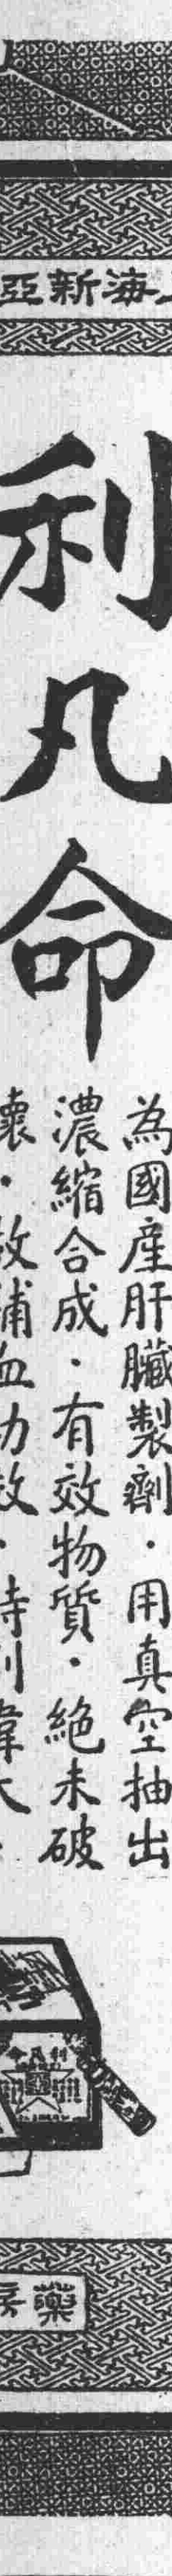 海新亞
利凡命
為國產肝臟製劑・用真空抽出
濃縮合成・有效物質・絕未破
壞・故補血功效・特別偉大
利凡命
藥房